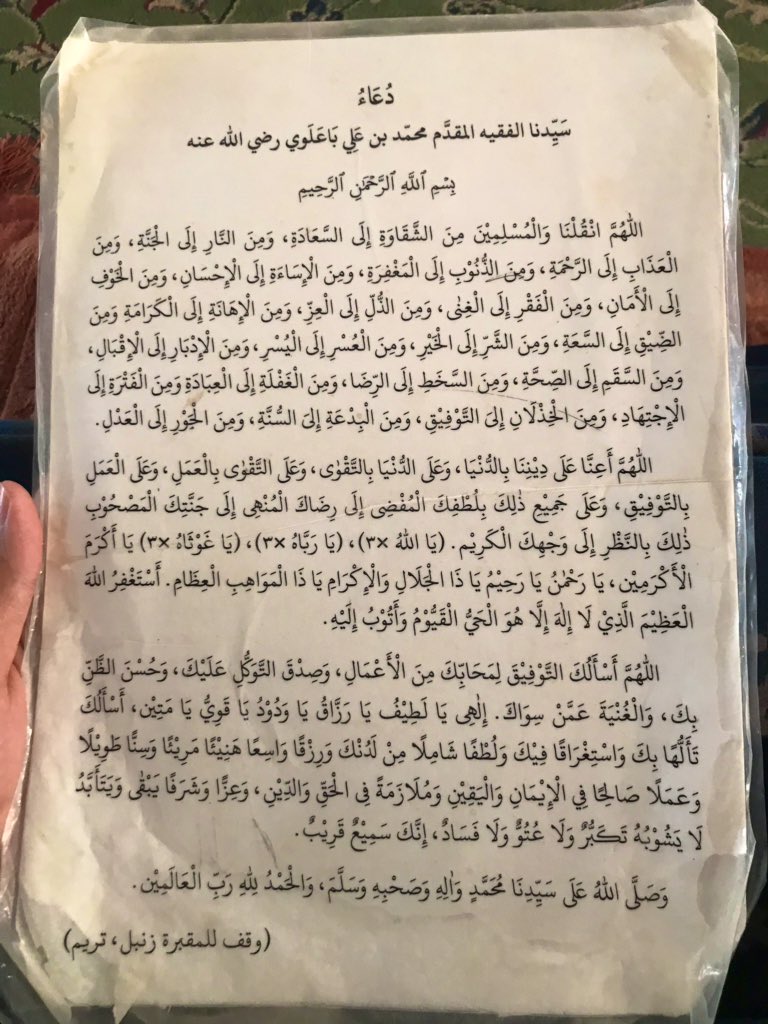 دُعَاءُ
سَيِّدنا الفقيه المقدَّم محمّد بن عَلِي بَاعَلَوي رضي الله عنه
بِسْمِ ٱللَّهِ ٱلرَّحْمَٰنِ ٱلرَّحِيمِ
اللّٰهُمَّ انْقُلْنَا وَالْمُسْلِمِيْنَ مِنَ الشَّقَاوَةِ إِلَى السَّعَادَةِ، وَمِنَ النَّارِ إِلَى الْجَنَّةِ، وَمِنَ
الْعَذَابِ إِلَى الرَّحْمَةِ، وَمِنَ الذُّنُوْبِ إِلَى الْمَغْفِرَةِ، وَمِنَ الْإِسَاءَةِ إِلَى الْإِحْسَانِ، وَمِنَ الْخَوْفِ
إِلَى الْأَمَانِ، وَمِنَ الْفَقْرِ إِلَى الْغِنٰى، وَمِنَ الذُّلِّ إِلَى الْعِزِّ، وَمِنَ الْإِهَانَةِ إِلَى الْكَرَامَةِ وَمِنَ
الضِّيْقِ إِلَى السَّعَةِ، وَمِنَ الشَّرِّ إِلَى الْخَيْرِ، وَمِنَ الْعُسْرِ إِلَى الْيُسْرِ، وَمِنَ الْإِدْبَارِ إِلَى الْإِقْبَالِ،
وَمِنَ السَّقَمِ إِلَى الصِّحَّةِ، وَمِنَ السَّخَطِ إِلَى الرِّضَا، وَمِنَ الْغَفْلَةِ إِلَى الْعِبَادَةِ وَمِنَ الْفَتْرَةِ إِلَى
الْإِجْتِهَادِ، وَمِنَ الْخِذْلَانِ إِلىَ التَّوْفِيْقِ، وَمِنَ الْبِدْعَةِ إِلىَ السُّنَّةِ، وَمِنَ الْجَوْرِ إِلَى الْعَدْلِ.
اللّٰهُمَّ أَعِنَّا عَلَى دِيْنِنَا بِالدُّنْيَا، وَعَلَى الدُّنْيَا بِالتَّقْوٰى، وَعَلَى التَّقْوٰى بِالْعَمَلِ، وَعَلَى الْعَمَلِ
بِالتَّوْفِيْقِ، وَعَلَى جَمِيْعِ ذٰلِكَ بِلُطْفِكَ الْمُفْضِى إِلَى رِضَاكَ الْمُنْهِى إِلَى جَنَّتِكَ الْمَصْحُوْبِ
ذٰلِكَ بِالنَّظْرِ إِلَى وَجْهِكَ الْكَرِيْمِ. (يَا اللهُ ×٣)، (يَا رَبَّاهُ ×٣)، (يَا غَوْثَاهُ ×٣) يَا أَكْرَمَ
الْأَكْرَمِيْن، يَا رَحْمٰنُ يَا رَحِيْمُ يَا ذَا الْجَلَالِ وَالْإِكْرَامِ يَا ذَا الْمَوَاهِبِ الْعِظَامِ. أَسْتَغْفِرُ اللهَ
الْعَظِيْمَ الَّذِيْ لَا إِلٰهَ إِلَّا هُوَ الْحَيُّ الْقَيُّوْمُ وَأَتُوْبُ إِلَيْهِ.
اللّٰهُمَّ أَسْأَلُكَ التَّوْفِيْقَ لِمَحَابِّكَ مِنَ الْأَعْمَالِ، وَصِدْقَ التَّوَكُّلِ عَلَيْكَ، وَحُسْنَ الظَّنِّ
بِكَ، وَالْغُنْيَةَ عَمَّنْ سِوَاكَ. إِلٰهِى يَا لَطِيْفُ يَا رَزَّاقُ يَا وَدُوْدُ يَا قَوِيُّ يَا مَتِيْن، أَسْأَلُكَ
تَأَلُّهًا بِكَ وَاسْتِغْرَاقًا فِيْكَ وَلُطْفًا شَامِلًا مِنْ لَدُنْكَ وَرِزْقًا وَاسِعًا هَنِيْئًا مَرِيْئًا وَسِنًّا طَوِيْلًا
وَعَمَلًا صَالِحًا فِي الْإِيْمَانِ وَالْيَقِيْنِ وَمُلَازَمَةً فِى الْحَقِّ وَالدِّيْنِ، وَعِزًّا وَشَرَفًا يَبْقٰى وَيَتَأَبَّدُ
لَا يَشُوْبُهُ تَكَبُّرٌ وَلَا عُتُوٌّ وَلَا فَسَادٌ، إِنَّكَ سَمِيْعٌ قَرِيْبٌ.
وَصَلَّى اللهُ عَلَى سَيِّدِنَا مُحَمَّدٍ وَاٰلِهِ وَصَحْبِهِ وَسَلَّمَ، وَالْحَمْدُ لِلّٰهِ رَبِّ الْعَالَمِيْن.
(وقف للمقبرة زنبل، تريم)